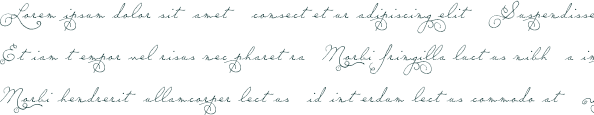 Lorem ipsum dolor sit amet consectetur adipiscing elit Suspendisse
Etiam tempor vel risus nec pharetra Morbi fringilla luctus nibh a in
Morbi hendrerit ullamcorper lectus id interdum lectus commodo at